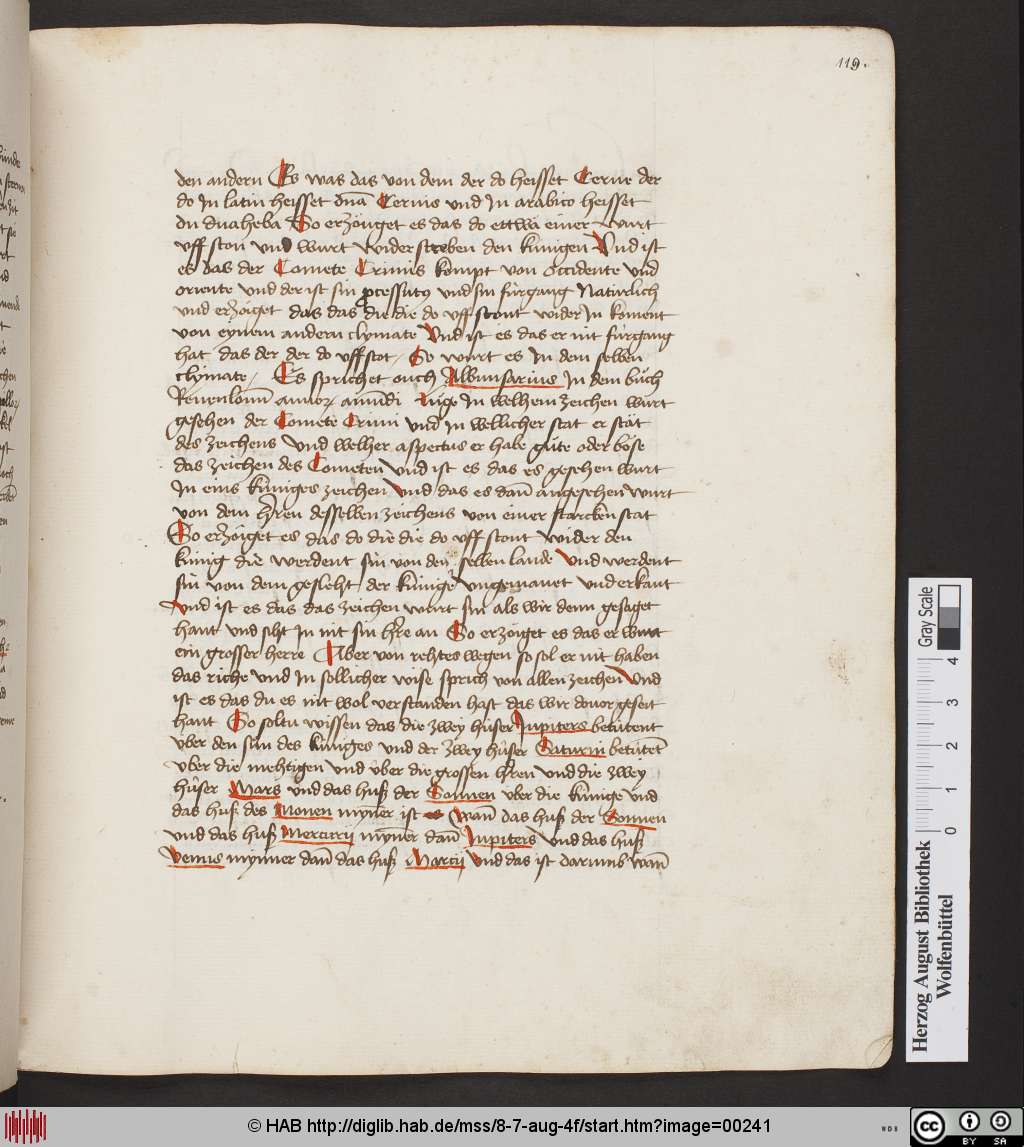 119.
den andern Es was das von dem der do heisset Cerne der
do Jn latin heisset dñā Cernis und Jn arabico heisset
du duaheba So erzöuget es das do ettwa einer wurt
uff ston und wurt widerstreben den kúnigen Und ist
es das der Comete Crinis kompt von occidente und
oriente und der ist sin processus und sin fúrgang Natúrlich
und erzöiget das das die die do uff stont wider Jn koment
von eynem andern clymate Und ist es das er nit fúrgang
hat das der der do uffstot / So wurt es Jn dem selben
clymate / Es sprichet ouch Albumsarius Jn dem bůch
annor mundi luge Jn welhem zeichen wurt
gesehen der Comete Crini und Jn wellicher stat er stät
des zeichens Und welher aspectus er habe gůte oder böse
das zeichen des Cometen Und ist es das es gesehen wurt
Jn eins kúniges zeichen und das es dañ angesehen wurt
von dem h̃ren desselben zeichens von einer starcken stat
So erzöiget es das do die die do uff stont wider den
kúnig die werdent sin von dem selben lande Und werdent
sin von dem geslecht der kúnige ungemanet und erkant
Und ist es das das zeichen wurt sin als wir denn gesaget
hant und siht Jn nit sin h̃re an So erzöiget es das er wurt
ein grosser herre Aber von rehtes wegen so sol er nit haben
das riche und Jn sollicher wise sprich von allen zeichen Und
ist es das du es nit wol verstanden hast das wir dovor geseit
hant So soltu wissen das die zwey húser Jupiters betútent
úber den sún des kúniges und der zwey húser Saturni betútet
úber die mehtigen und úber die grossen h̃ren und die zwey
húser Mars und das huß der Sonnen úber die kúnige und
das huß des Monen mynner ist wañ das huß der Sonnen
und das huß Mercurij mynner dañ Jupiters und das huß
Venus mynner dañ das huß Martij Und das ist darumb wañ
Gray Scale
0 1 2 3 4
Herzog August Bibliothek
Wolfenbüttel
© HAB http://diglib.hab.de/mss/8-7-aug-4f/start.htm?image=00241
WDB
cc BY SA